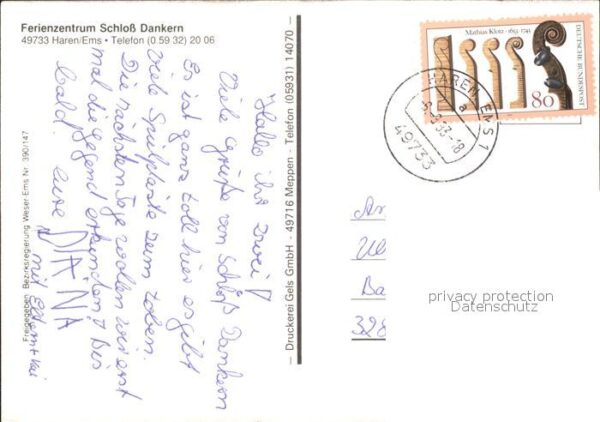 Ferienzentrum Schloß Dankern
49733 Haren/Ems • Telefon (0 59 32) 20 06
Hallo ihr zwei!
Viele Grüße von Schloß Dankern
Es ist ganz toll hier es gibt
viele Spielplätze zum toben.
Die nächsten Tage wollen wir erst
mal die gegend erkunden. Bis
bald. eure DIANA
mit Elt
Freigegeben Bezirksregierung Weser-Ems Nr. 390/147
— Druckerei Gels GmbH - 49716 Meppen - Telefon (05931) 14070 —
Mathias Klotz · 1653-1743
DEUTSCHE BUNDESPOST
80
HAREN, EMS 1
a
-18
49733
An
Ba
328
privacy protection
Datenschutz